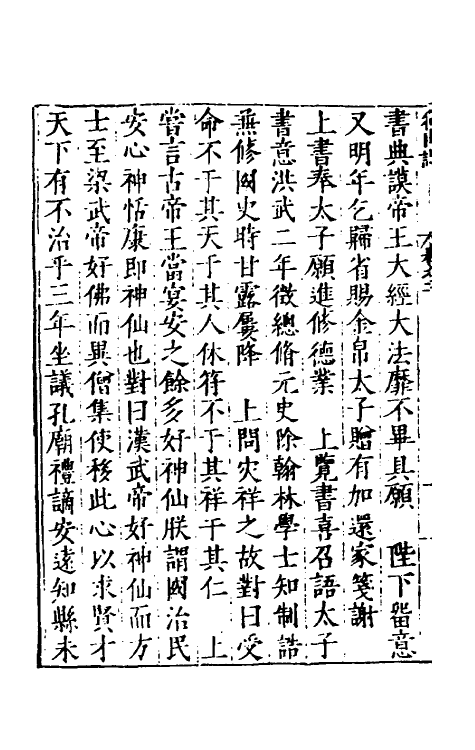 書典謨帝王大經大法靡不畢具願　陛下留意
又明年乞歸省賜金帛太子贈有加還家箋謝
上書奉太子願進修德業　上覽書喜召語太子
書意洪武二年徴總脩元史除翰林學士知制誥
兼修國史時甘露屢降　上問災祥之故對曰受
命不于其天于其人休符不于其祥于其仁　上
嘗言古帝王當宴安之餘多好神仙朕謂國治民
安心神恬康即神仙也對曰漢武帝好神仙而方
士至梁武帝好佛而異僧集使移此心以求賢才
天下有不治乎三年坐議孔廟禮謫安遠知縣未